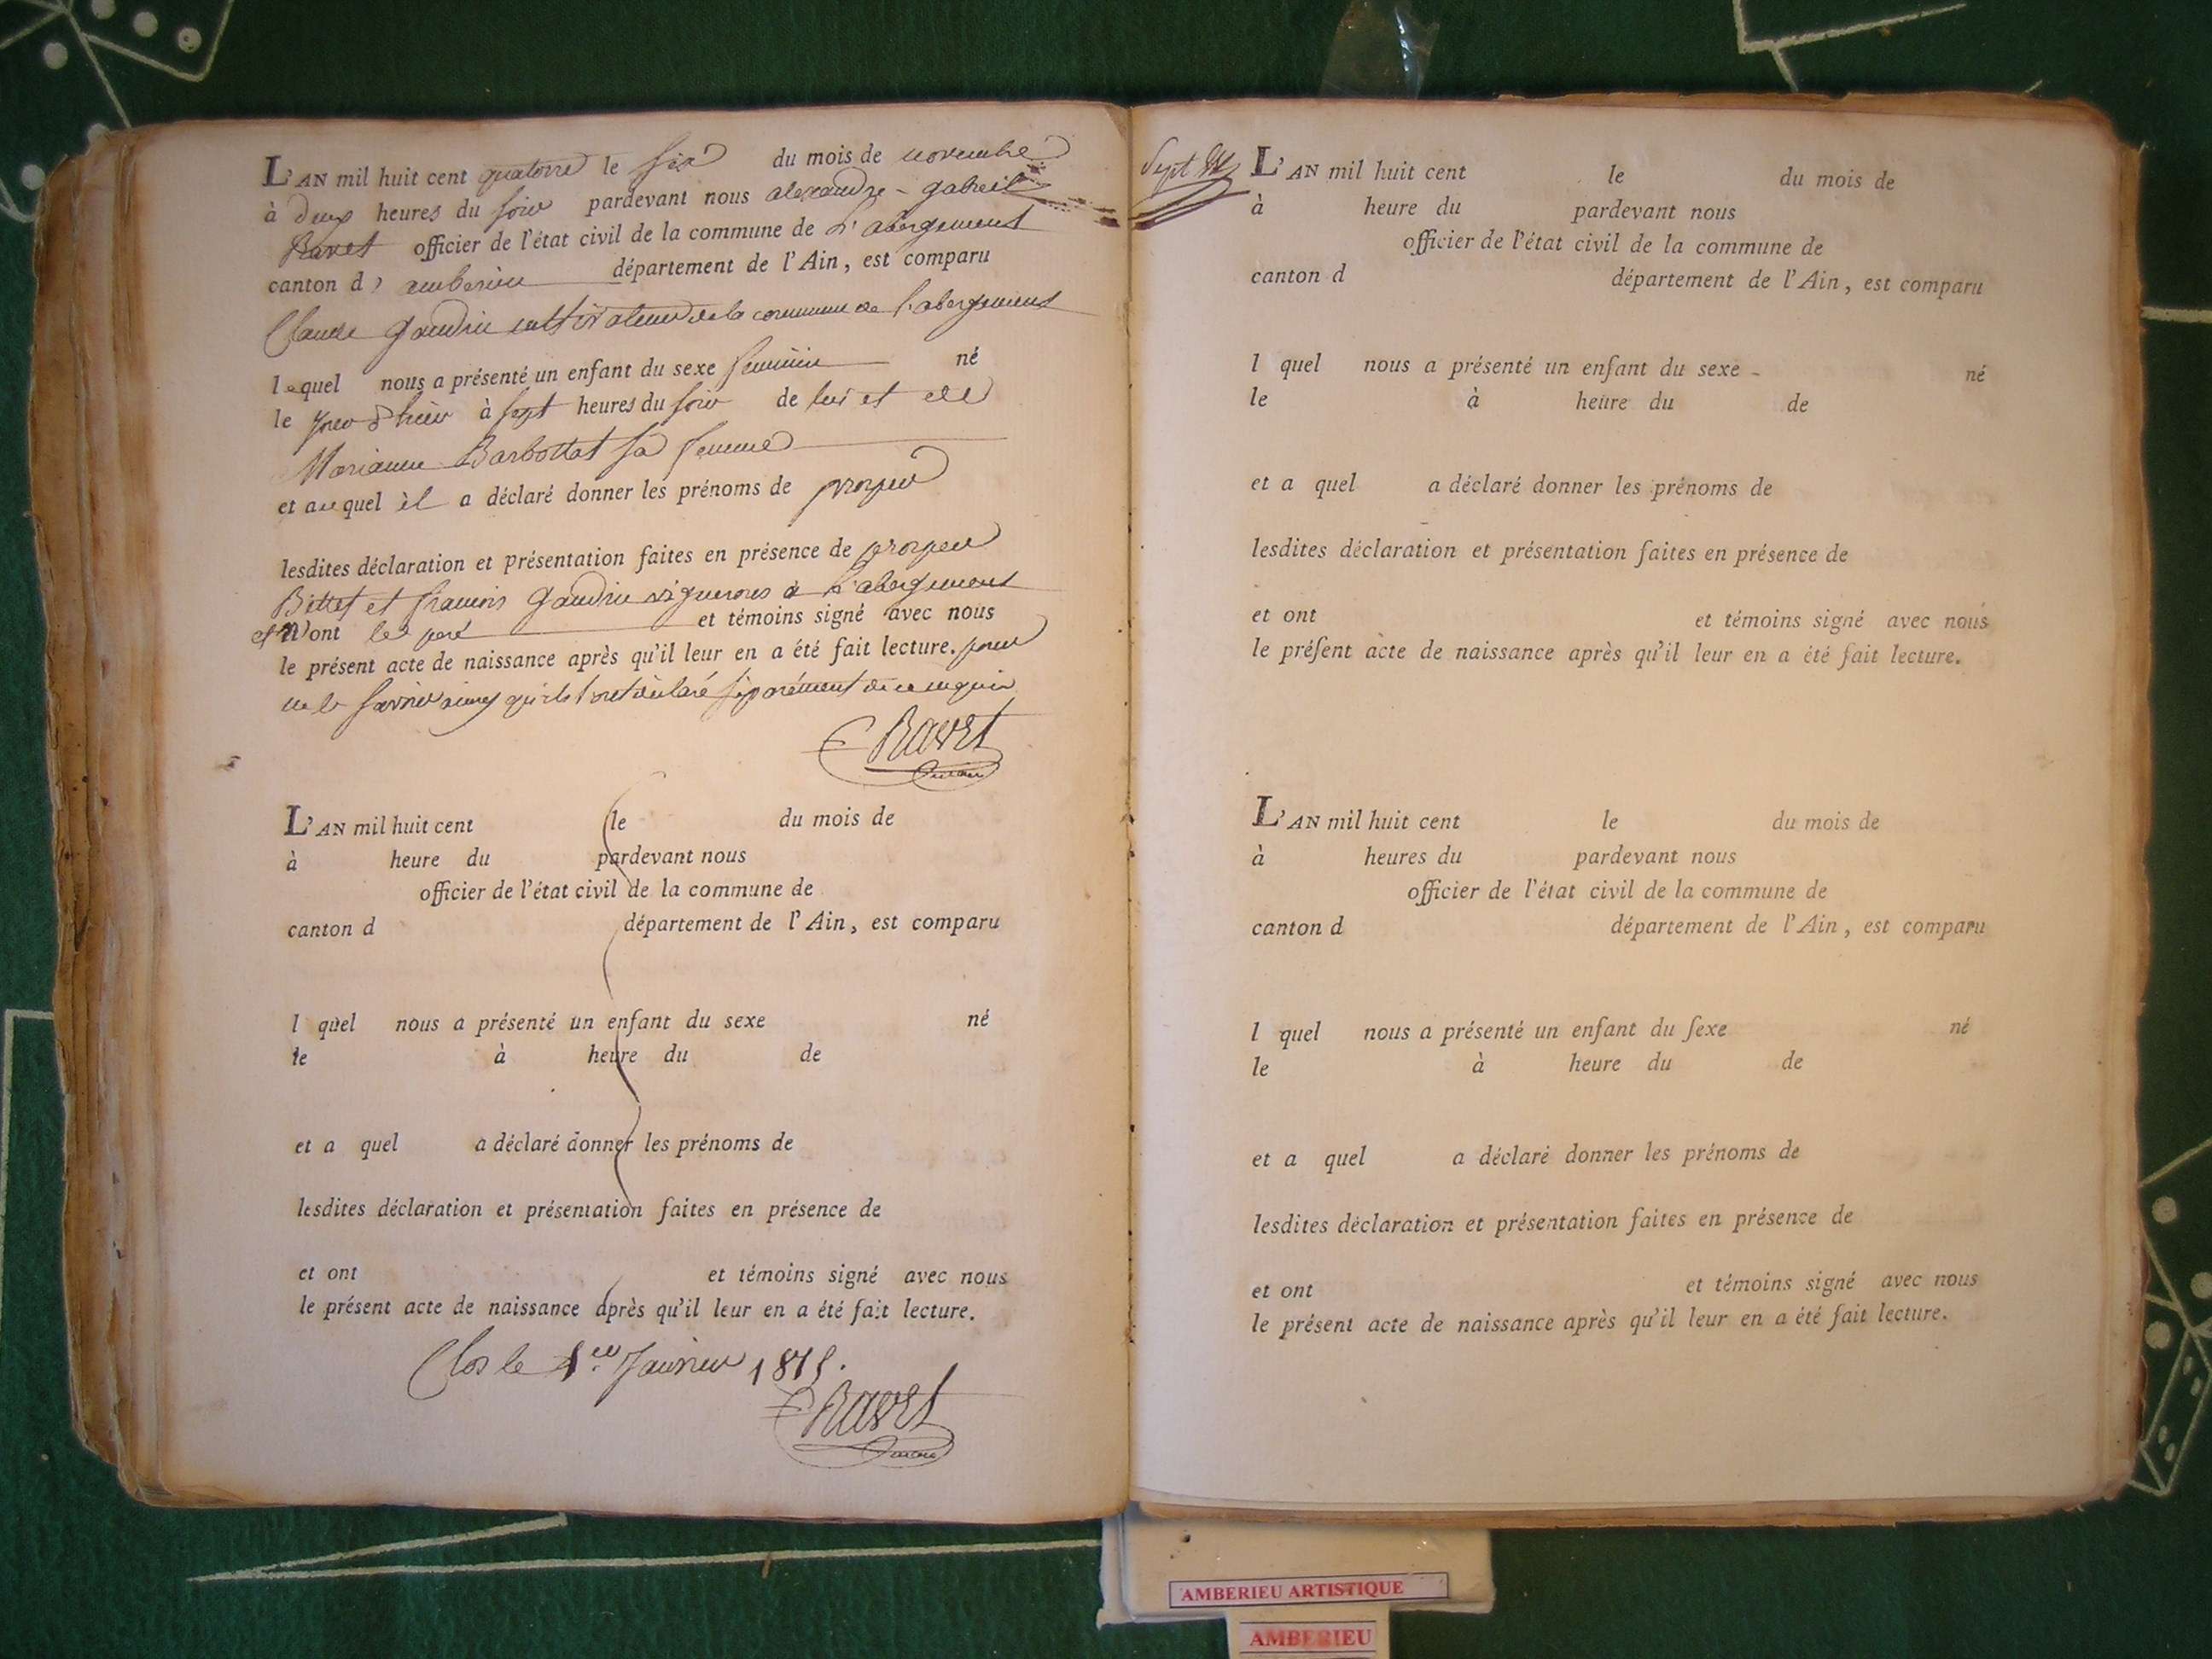 L'AN mil huit cent quatorze le six du mois de novembre
à deux heures du soir pardevant nous alexandre - gabriel
Ravet officier de l'état civil de la commune de L'abergement
canton d' amberieu département de l'Ain, est comparu
Claude Gaudin cultivateur de la commune de l'abergement
lequel nous a présenté un enfant du sexe feminin né
le jour d'hier à sept heures du soir de lui et de
Marianne Barbottat sa femme
et auquel il a déclaré donner les prénoms de
lesdites déclaration et présentation faites en présence de
Bettet et francois Gaudin vignerons à L'abergement
et n'ont le peré et témoins signé avec nous
le présent acte de naissance après qu'il leur en a été fait lecture. pour
ne le savoir ainsy qu'ils l'ont déclaré séparément de ce requis
Ravet
L'AN mil huit cent le du mois de
à heure du pardevant nous
officier de l'état civil de la commune de
canton d département de l'Ain, est comparu
l quel nous a présenté un enfant du sexe né
le à heure du de
et a quel a déclaré donner les prénoms de
lesdites déclaration et présentation faites en présence de
et ont et témoins signé avec nous
le présent acte de naissance après qu'il leur en a été fait lecture.
Clos le 1er Janvier 1815.
Ravet
Sept
L'AN mil huit cent le du mois de
à heure du pardevant nous
officier de l'état civil de la commune de
canton d département de l'Ain, est comparu
l quel nous a présenté un enfant du sexe né
le à heure du de
et a quel a déclaré donner les prénoms de
lesdites déclaration et présentation faites en présence de
et ont et témoins signé avec nous
le préſent acte de naissance après qu'il leur en a été fait lecture.
L'AN mil huit cent le du mois de
à heures du pardevant nous
officier de l'état civil de la commune de
canton d département de l'Ain, est comparu
l quel nous a présenté un enfant du ſexe né
le à heure du de
et a quel a déclaré donner les prénoms de
lesdites déclaration et présentation faites en présence de
et ont et témoins signé avec nous
le présent acte de naissance après qu'il leur en a été fait lecture.
AMBERIEU ARTISTIQUE
AMBERIEU